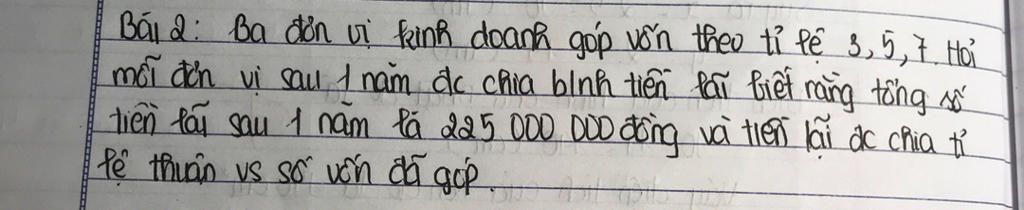 Bài 2: Ba đơn vị kinh doanh góp vốn theo tỉ lệ 3, 5, 7. Hỏi
mỗi đơn vị sau 1 năm đc chia bInh tiền lãi biết rằng tổng số
tiền lãi sau 1 năm là 225 000 000 đồng và tiền lãi đc chia tỉ
lệ thuận vs số vốn đã góp.